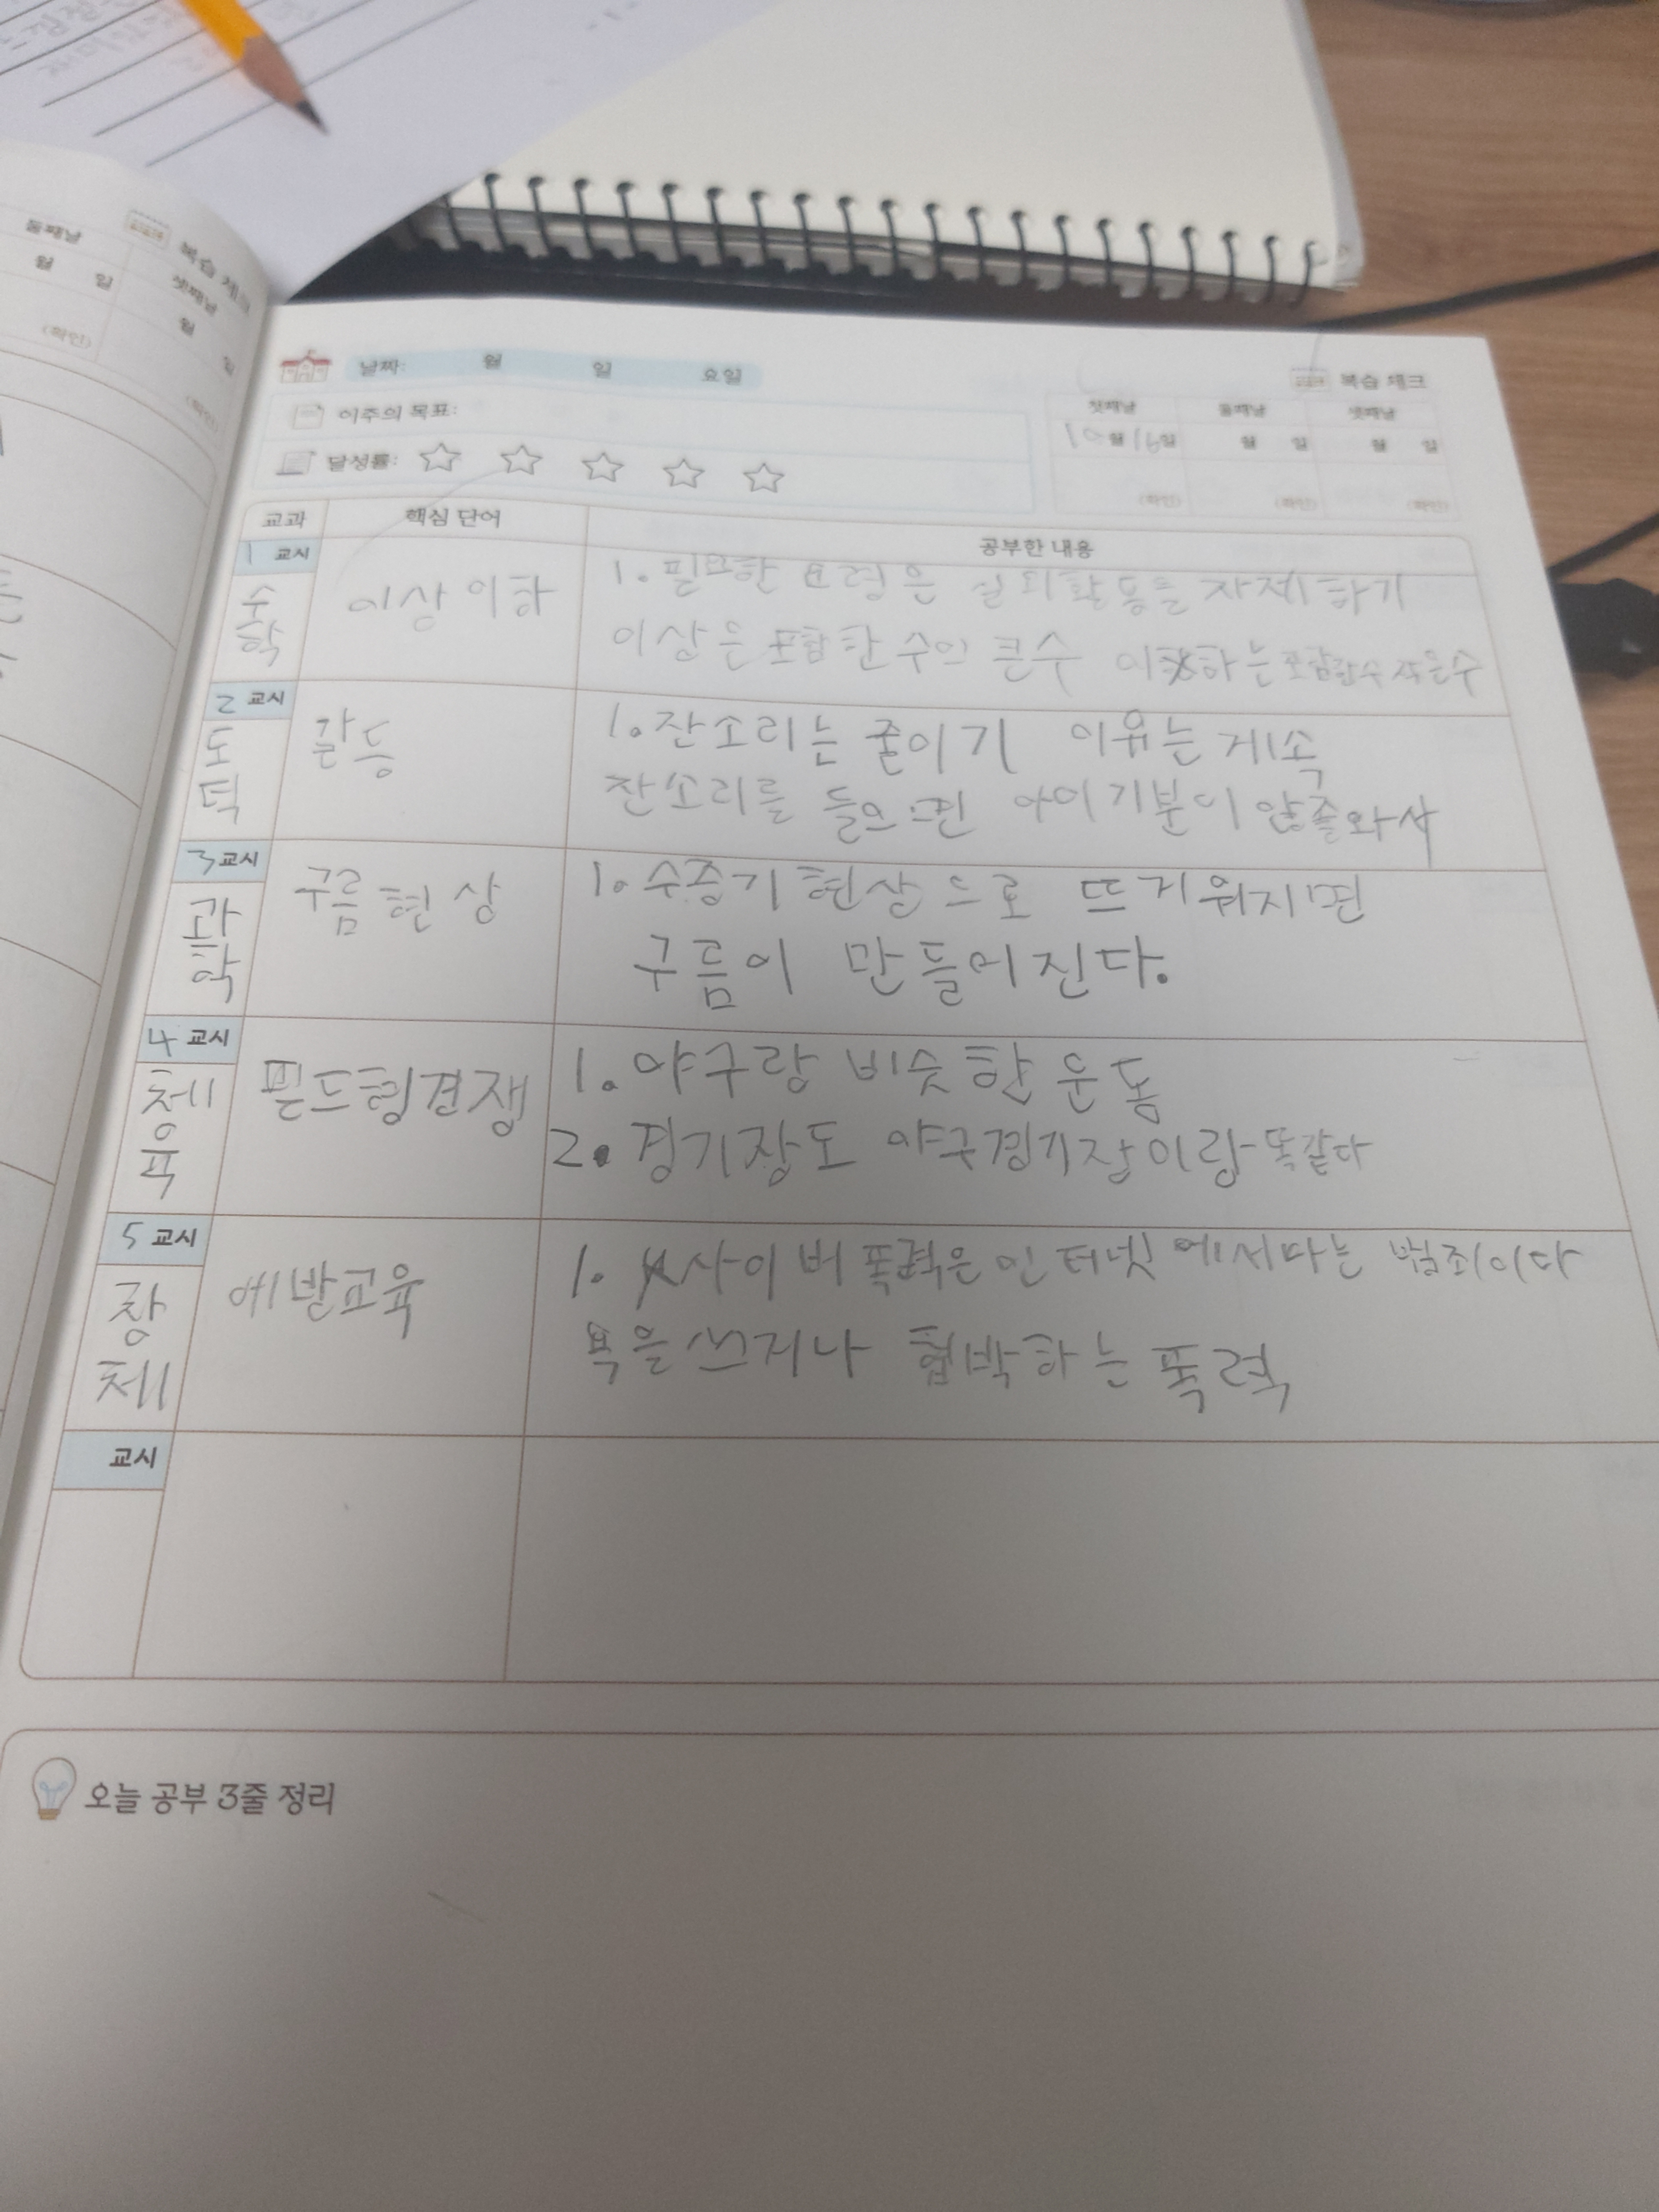 둘째날
복습 체크
월 일
셋째날
월 일
(확인)
(확인)
날짜: 월 일 요일
복습 체크
이주의 목표:
첫째날 둘째날 셋째날
10월 16일 월 일 월 일
달성률:
(확인) (확인) (확인)
교과 핵심 단어 공부한 내용
1 교시
수학
이상 이하
1. 필요한 요령은 실외활동을 자제하기
이상은 포함한 수의 큰수 이하는 포함한수 작은수
2 교시
도덕
갈등
1. 잔소리는 줄이기 이유는 게속
잔소리를 들으면 아이기분이 않좋와서
3 교시
과학
구름 현상
1. 수증기 현상으로 뜨거워지면
구름이 만들어진다.
4 교시
체육
필드형경쟁
1. 야구랑 비슷한 운동
2. 경기장도 야구경기장이랑 똑같다
5 교시
창체
예방교육
1. 사이버 폭력은 인터넷에서 범죄이다
욕을 쓰거나 협박하는 폭력
교시
오늘 공부 3줄 정리